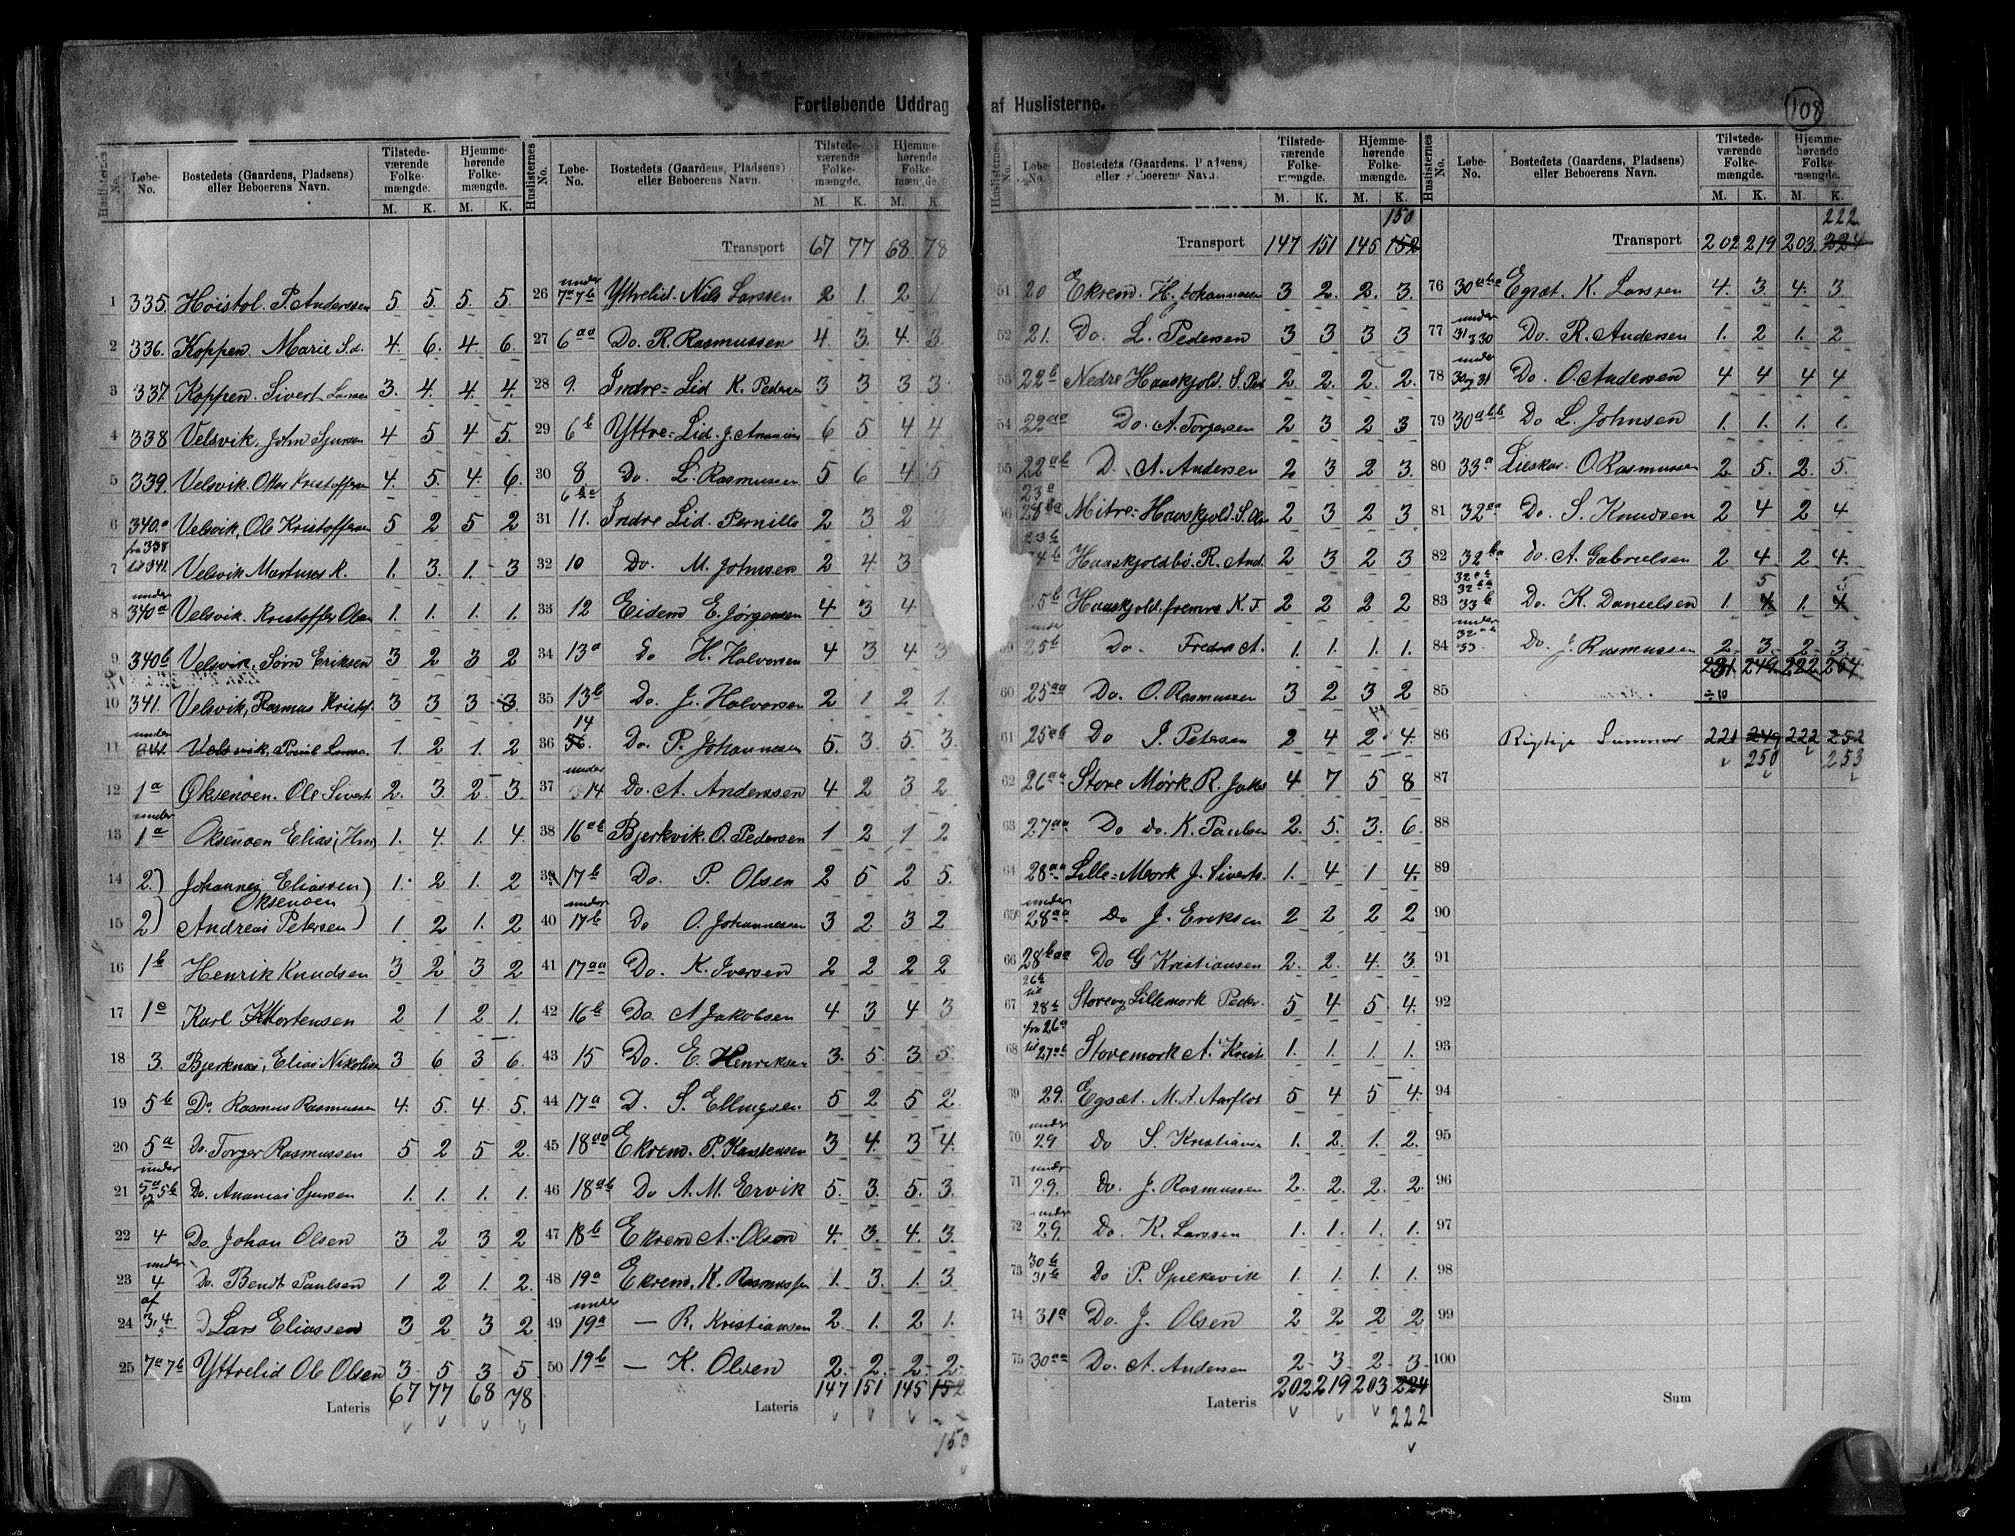 Fortløbende Uddrag af Huslisterne.
108
Huslisternes No. | Løbe-No. | Bostedets (Gaardens, Pladsens) eller Beboerens Navn. | Tilstedeværende Folkemængde. M. K. | Hjemmehørende Folkemængde. M. K.
1 335. Höistol. P. Anderssen 5 5. 5. 5.
2 336. Koppen. Marie S.d. 4. 6. 4 6.
3 337. Koppen. Sivert Larsen 3. 4. 4. 4.
4 338 Velsvik, John Sjursen 4 5 4 5.
5 339. Velsvik. Kristoffersen 4. 5. 4. 6
6 340.a Velsvik, Ole Kristoffersen 5 2 5 2
7 fra 338 til 341. Velsvik Martinus K. 1. 3. 1. 3
8 under 340a Velsvik. Kristoffer Olsen 1. 1. 1. 1.
9 340b Velsvik, Sørn Eriksen 3 2 3 2
10 341. Velsvik, Rasmus Kristof. 3 3 3 3.
11 under 341. Velsvik, 1. 2 1. 2
12 1a Oksenöen. Ole Sivert 2. 3 2. 3.
13 under 1a Oksenöen Elias 1. 4. 1. 4.
14 2.) Johannes Eliassen) 1. 2 1. 2
Oksenöen
15 2) Andreas Petersen) 1 2 1. 2
16 1b Henrik Knudsen 3 2 3 2
17 1c Karl Mortensen 2 1 2 1.
18 3. Bjerknes, Elias Nikolai 3 6 3 6.
19 5b Do Rasmus Rasmussen 4. 5. 4. 5.
20 5a Do. Torger Rasmussen 5 2 5 2.
21 under 5a og 5b Do. Ananias Sjursen 1. 1. 1. 1.
22 4 Do. Johan Olsen 3 2 3 2
23 under 4 Do. Bendt Paulsen 1 2 1. 2.
24 af 3, 4 D Lars Eliassen 3 2 3 2
25 7a 7b Yttrelid Ole Olsen 3. 5 3 5
Lateris 67 77 68 78
Huslisternes No. | Løbe-No. | Bostedets (Gaardens, Pladsens) eller Beboerens Navn. | Tilstedeværende Folkemængde. M. K. | Hjemmehørende Folkemængde. M. K.
Transport 67 77 68 78
26 under 7a 7b Yttrelid. Nils Larssen 2 1. 2 1
27 6aa Do. R. Rasmussen 4. 3. 4. 3.
28 9. Indre=Lid K. Pedersen 3 3 3 3.
29 6b Yttre=Lid. J. Ananias 6 5 4 4
30 8 Do. L. Rasmussen 5 6 4 5
31 6ba 11. Indre Lid. Pernille 2 3 2
32 10 Do. M. Johnsen 2 4 3
33 12 Eidem E. Jørgensen 4 3 4
34 13a Do H. Halvorsen 4 3 4 3
35 13b Do. J. Halvorsen 2 1 2 1.
36 14 Do. P. Johannesen 5. 3. 5 3.
37 under 14 Do. A. Anderssen 4 2 3 2
38 16ab Bjerkvik. O. Pedersen 1 2 1 2
39 17b Do. P. Olsen 2 5 2 5.
40 under 17b Do O. Johannesen 3 2 3 2
41 17aa Do. K. Iversen 2 2 2 2
42 16b Do. A Jakobsen 4 3 4 3
43 15 Do. E. Henriksen 3. 5. 3. 5.
44 17a D. S. Ellingsen 5 2 5 2.
45 18aa Ekrem. P. Karstensen 3 4. 3 4.
46 18ab Do A. M. Ervik 5. 3. 5. 3.
47 18b Ekrem A. Olsen 4. 3. 4. 3.
48 19a Ekrem, K. Rasmussen 1. 3. 1. 3
49 under 19a — R. Kristiansen 2. 1. 2 1.
50 19b — K. Olsen 2. 2. 2. 2.
Lateris 147 151 145 152
150
Huslisternes No. | Løbe-No. | Bostedets (Gaardens, Pladsens) eller Beboerens Navn. | Tilstedeværende Folkemængde. M. K. | Hjemmehørende Folkemængde. M. K.
150
Transport 147 151 145 152
51 20 Ekrem. H. Johannessen 3 2. 2. 3.
52 21. Do. L. Pedersen 3 3 3 3
53 22b Nedre Haaskjold. S. Ped 2. 2. 2. 2.
54 22aa Do. A. Torgersen 2 3 2 3
55 22ab D. A. Andersen 2 3 2 3.
56 23a Mitre=Haaskjold. S. Ols 2 3 2 3
23b 24b Haaskjoldbø. R. And. 2 3 2 3
5b Haaskjold. fremre K. T. 2 2 2 2
59 under 25b Do. Fredrik A. 1. 1. 1. 1.
60 25aa Do. O. Rasmussen 3 2 3 2
61 25ab Do J. Petersen 2 4 2 4.
62 26aa Store Mørk R. Jakos 4 7 5 8
63 27aa Do do. K. Paulsen 2. 5. 3. 6.
64 28aa Lille=Mørk J. Siverts. 1. 4 1 4.
65 under 28aa Do J. Eriksen 2 2 2 2
66 28baa Do G Kristiansen 2. 2. 4. 3.
67 26b til 28b Store og Lillemork Peder. 5 4 5 4.
68 fra 26a til 27ab Storemork A. Krist 1. 1. 1. 1.
69 29. Egsæt. M. A. Aarflot 5 4 5 4.
70 under 29 Do S. Kristianse 1. 2. 1. 2.
71 under 29. Do. J. Rasmussen 2. 2. 2. 2.
72 under 29. Do. K. Larssen 1. 1. 1. 1.
73 30b 31b Do P. Spilkevik 1. 1. 1. 1.
74 31a Do. J. Olsen 2 2 2 2
75 30aa Do. A. Andersen 2. 3. 2. 3.
Lateris 202 219 203 224
222
Huslisternes No. | Løbe-No. | Bostedets (Gaardens, Pladsens) eller Beboerens Navn. | Tilstedeværende Folkemængde. M. K. | Hjemmehørende Folkemængde. M. K.
222
Transport 202 219 203. 224
76 30aba Egsæt. K. Larssen 4. 3. 4. 3.
77 under 31 & 30 Do. R. Andersen 1. 2 1. 2
78 under 30 og 31 Do. O. Andersen 4 4 4 4
79 30abb Do L. Johnsen 1. 1. 1. 1.
80 33a Lieskar. O. Rasmussen 2. 5. 2. 5.
81 32aa Do. S. Knudsen 2 4 2 4
82 32ba Do. A. Gabrielsen 2 4. 2 4.
5 5
83 32ab 32bb 33b Do. K. Danielsen 1. 4 1. 4
84 under 32ab 33 Do. J. Rasmussen 2. 3. 2. 3.
231. 249. 222. 254
85 ÷10
86 Rigtige Summer 221 249 222 252
250 253
87
88
89
90
91
92
93
94
95
96
97
98
99
100
Sum